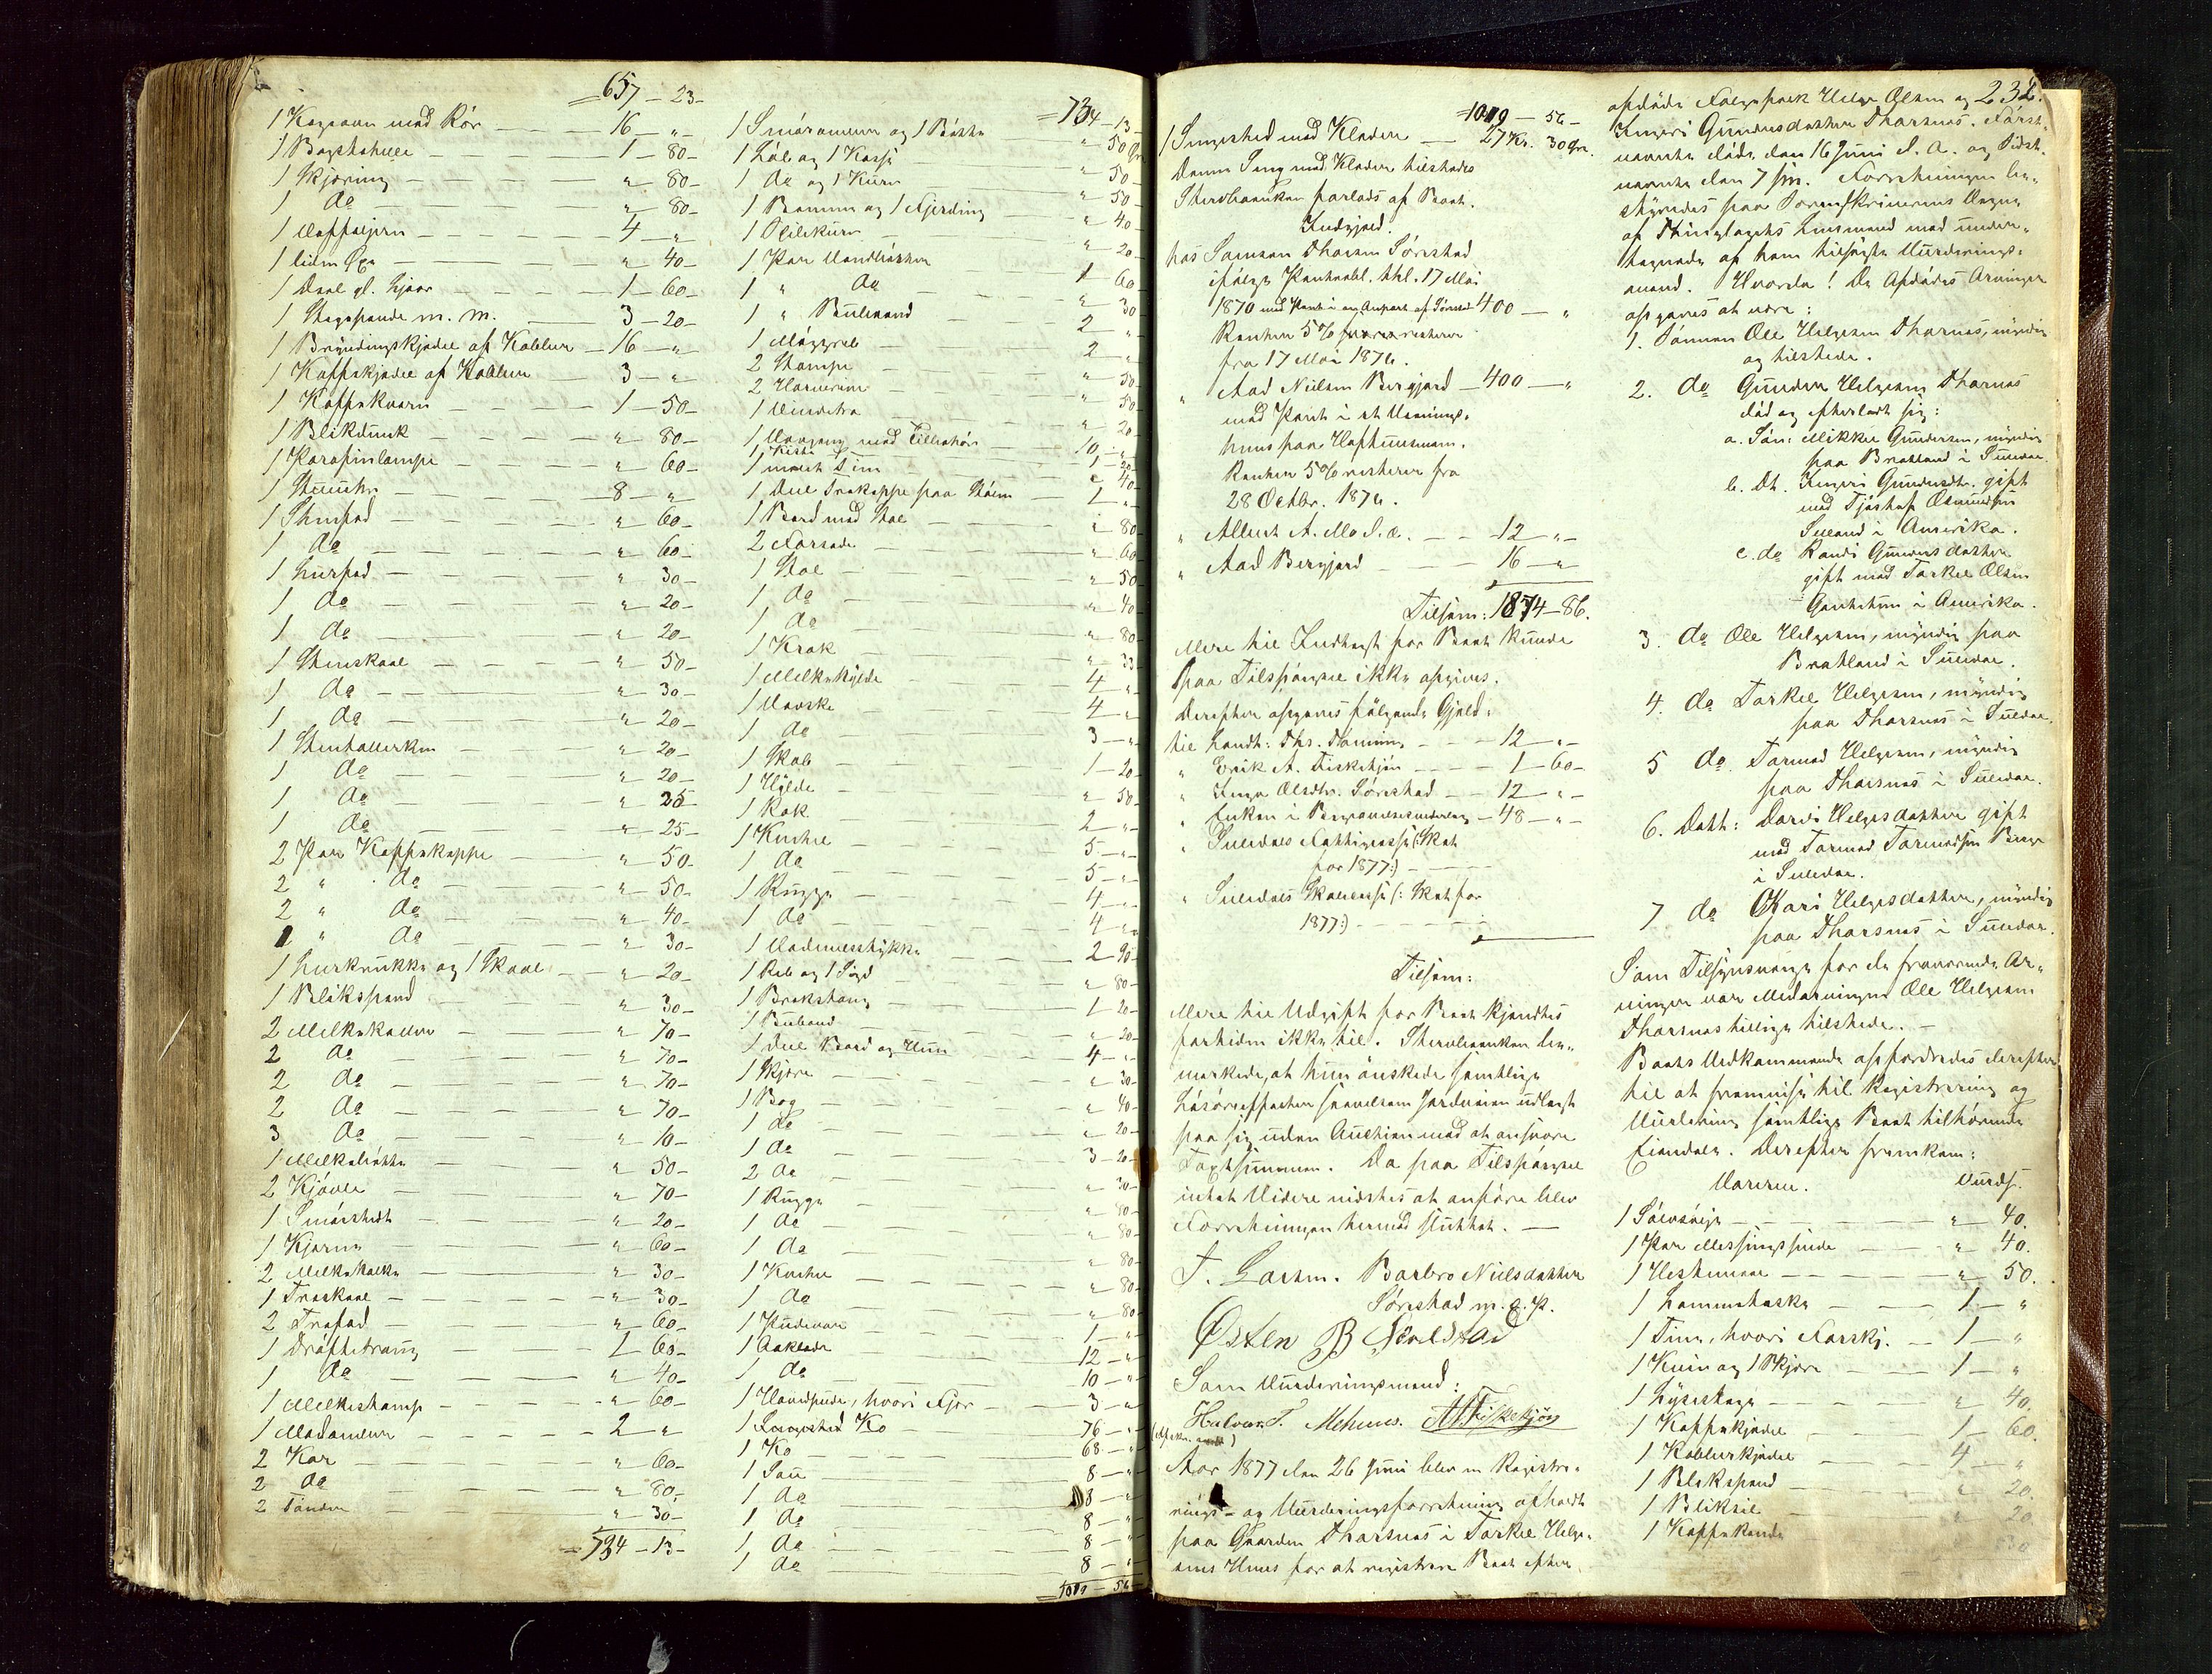 657 - 23 -
1 Kogeovn med Rör — 16 - " -
1 Bagstehelle — 1 - 80 -
1 Skjæring — " - 80 -
1 do — " - 80 -
1 Vaffeljern — 4 - "
1 liden Øxe — " - 40 -
1 Deel gl. Ljaar — 1 - 60 -
1 Stegepande m. m. — 3 - 20 -
1 Brygningskjedel af Kobber — 16 - "
1 Kaffekjedel af Kobber — 3 - "
1 Kaffekvern — 1 - 50 -
1 Blikdunk — " - 80 -
1 Parafinlampe — " - 60 -
1 Stueuhr — 8 - "
1 Stenfad — " - 60 -
1 do — " - 60 -
1 Lerfad — " - 30 -
1 do — " - 20 -
1 do — " - 20 -
1 Stenskaal — " - 50 -
1 do — " - 30 -
1 do — " - 20 -
1 Stentallerken — " - 20 -
1 do — " - 20 -
1 do — " - 25
1 do — " - 25 -
2 Par Kaffekoppe — " - 50 -
2 " do — " - 50 -
2 " do — " - 40 -
2 " do — " - 30 -
1 Lerkrukke og 1 Skaal — " - 20 -
1 Blikspand — " - 30 -
2 Melkekoller — " - 70 -
2 do — " - 70 -
2 do — " - 70 -
2 do — " - 70 -
3 do — " - 10 -
1 Melkebøtte — " - 50 -
2 Kjøvle — " - 70 -
1 Smørstedt — " - 20 -
1 Kjerne — " - 60 -
2 Melkekolke — " - 30 -
1 Træskaal — " - 30 -
2 Træfad — " - 60 -
1 Drøftetraug — 1 - 60 -
1 do — " - 40 -
1 Melkestamp — " - 60 -
1 Madamein — 2 - "
2 Kar — " - 60 -
2 do — " - 80 -
2 Tønder — " - 30 -
734 - 13 -
734 - 13 -
1 Smøramein og 1 Bøtte — " - 50
1 Løb og 1 Kasse — " - 50
1 do og 1 Kurv — " - 50
1 Bomme og 1 Fjerding — " - 40
1 Oldekurv — " - 20
1 Par Vandbøtter — 1 - 60
1 " do — " - 30
1 " Bulevand — 2 - "
1 Møggreb — 2 - "
2 Stampe — " - 50
2 — " - 50
1 — " - 20
1 Vævgang med Tilbehør — 10 - "
1 Kiste — 1 - 20
1 Tine — " - 40
1 Deel Trækoppe paa Støen — 1 - "
1 Bord med Stol — " - 80
2 Forsæde — " - 60
1 Stol — " - 50
1 do — " - 40
1 do — " - 80
1 Krak — " - 33
1 Melkehylde — 4 - "
1 Vævske — 4 - "
1 do — 3 - "
1 Skab — 1 - 20
1 Hylde — " - 50
1 Rok — 2 - "
1 Kuehel — 5 - "
1 do — 5 - "
1 Rugge — 4 - "
1 do — 4 - "
1 Vadmelsstykke — 2 - 90
1 Reb og 1 Sigd — " - 80
1 Brækstang — 1 - 20
1 — " - 20
1 Deel Bord og — 4 - "
1 Skjære — " - 30
1 Bog — " - 40
1 do — " - 20
1 do — 3 - 20
2 do — " - 30
1 Rugge — " - 80
1 do — " - 80
1 do — " - 80
1 Kuehel — " - 80
1 do — " - 80
1 Pudevar — 1 - "
1 Aaklæde — 12 - "
1 do — 10 - "
1 Hovedpude, hvori Fjer — 3 - "
1 Ko — 76 - "
1 Ko — 68 - "
1 Sau — 8 - "
1 do — 8 - "
1 do — 8 - "
1 do — 8 - "
1 do — 8 - "
1019 - 56
1019 - 56 -
1 Sengested med Klæder — 27 Kr. 30 Ør.
Denne Seng med Klæder tilstedes
Sterboenken forlods af Boet.
Indgjæld.
hos Samson Thorsen Sørestad
ifølge Panteobl. thl. 17 Mai
1870 med Pant i en Anpart af Sørestad 400 - "
Renter 5 % resterer
fra 17 Mai 1876.
" Aad Nielsen Bergjord — 400 - "
med Pant i et Vaanings-
huus paa Haftuusmoen.
Renter 5 % resterer fra
28 Octbr. 1876.
" Albert A. Mo S. æ. — 12 - " -
" Aad Bergjord — 16 - "
Tilsam: 1874 - 86.
Mere til Indtægt for Boet kunde
paa Tilspørgsel ikke opgives.
Derefter opgaves følgende Gjæld:
til Landh: Ths. Rønning — 12 - " -
" Erik A. Fiskekjøn — 1 - 60 -
" Inger Olsdtr. Sørestad — 12 - " -
" Enken i Begravelsesudlæg — 48 - " -
" Suledals Fattigcasse (: Skat
for 1877 :) —
" Suledals Skolecasse (: Skat for
1877 :) —
Tilsam:
Mere til Udgift for Boet kjendtes
fortiden ikke til. Sterboenken be-
mærkede, at hun ønskede samtlige
Løsøreeffecter saavelsom Jordveien udlagt
paa sig uden Auction mod at ansvare
Taxtsummen. Da paa Tilspørgsel
intet Videre vidstes at anføre blev
Forretningen hermed sluttet. —
T. Larsen. Barbro Nielsdatter
Sørestad m. p. P.
Østen B Sørestad
Som Vurderingsmænd:
Halvor T. Mehuus. A Fiskekjøn
Aar 1877 den 26 Juni blev en Registre-
rings- og Vurderingsforretning afholdt
paa Gaarden Thorsnæs i Torkel Helge-
sens Huus for at registrere Boet efter
232.
afdøde Folgefolk Helge Olsen og
Ingeri Gundersdatter Thorsnæs. Først-
nævnte døde den 16 Juni d. A. og Sidst-
nævnte den 7 s. m. Forretningen be-
styredes paa Sorenskriverens Vegne
af Thinglagets Lensmand med under-
tegnede af ham tilsagte Vurderings-
mænd. Hvorda! De Afdødes Arvinger
opgaves at være:
1. Sønnen Ole Helgesen Thorsnæs, myndig
og tilstede.
2. do Gunder Helgesen Thorsnæs
død og efterladt sig:
a. Søn: Mikkel Gundersen, myndig
paa Bratland i Suledal.
b. Dt. Ingeri Gundersdtr. gift
med Tjøstof Osmundsen
Suland i Amerika.
c. do Randi Gundersdatter
gift med Torkel Olsen
i Amerika.
3. do Ole Helgesen, myndig paa
Bratland i Suledal.
4. do Torkel Helgesen, myndig
paa Thorsnæs i Suledal.
5 do. Tormod Helgesen, myndig
paa Thorsnæs i Suledal.
6. Datt: Dordi Helgesdatter gift
med Tormod Tormodsen Berge
i Suledal.
7 do Kari Helgesdatter, myndig
paa Thorsnæs i Suledal.
Som Tilsynsværge for de fraværende Ar-
vinger var Medarvingen Ole Helgesen
Thorsnæs tillige tilstede. —
Boets Vedkommende opfordredes derefter
til at fremvise til Registrering og
Vurdering samtlige Boet tilhørende
Eiendele. Derefter fremkom:
Varerne. Vurdf.
1 Sølvsølje — " 40.
1 Par Messingspende — " 40.
1 — " 50.
1 Lommetaske — 1 - "
1 Tine, hvori Forskj. — 1 - "
1 Kniv og 1 Skjære — 1 - "
1 Lysestage — " 40.
1 Kaffekjedel — 1 - 60.
1 Kobberkjedel — 4 - "
1 Blekspand — " 20.
1 Bliksil — " 20.
1 Kaffekande — " 30